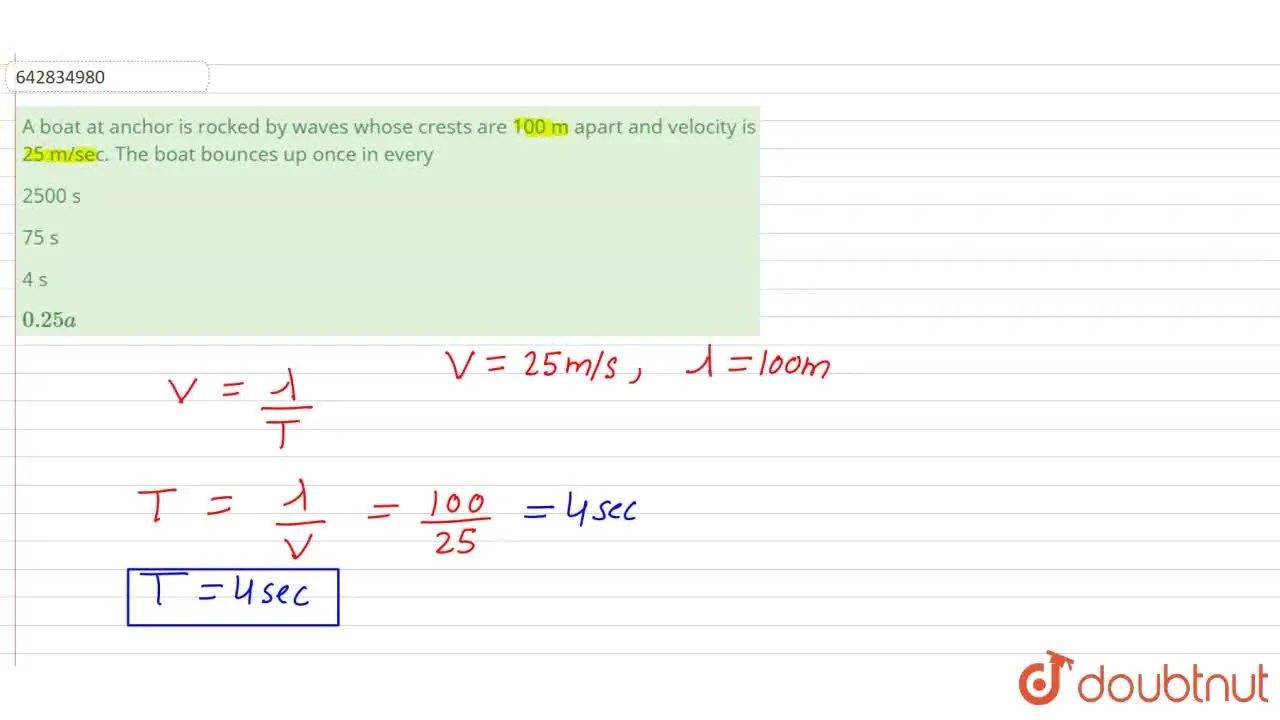 642834980
A boat at anchor is rocked by waves whose crests are 100 m apart and velocity is
25 m/sec. The boat bounces up once in every
2500 s
75 s
4 s
0.25a
V = 25m/s, λ = 100m
V = λ/T
T = λ/V = 100/25 = 4sec
T = 4sec
doubtnut